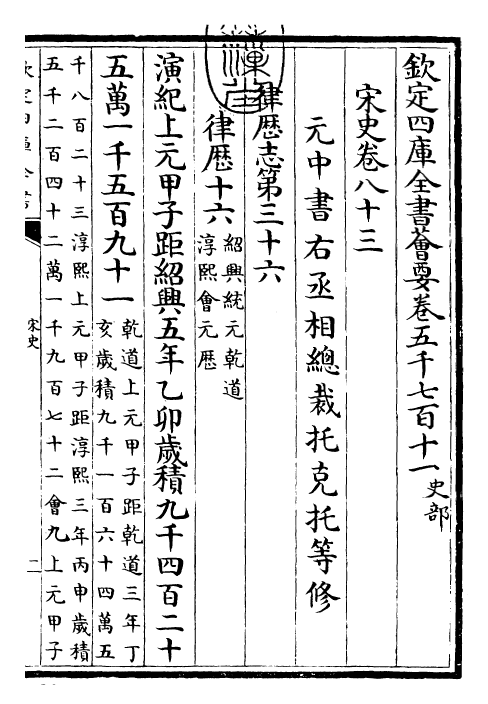 欽定四庫全書薈要卷五千七百十一 史部
宋史卷八十三
元中書右丞相總裁托克托等修
律厯志第三十六
律厯十六 紹興統元乾道
淳熙會元厯
演紀上元甲子距紹興五年乙卯歲積九千四百二十
五萬一千五百九十一 乾道上元甲子距乾道三年丁
亥歲積九千一百六十四萬五
千八百二十三淳熙上元甲子距淳熙三年丙申歲積
五千二百四十二萬一千九百七十二會九上元甲子
宋史
二